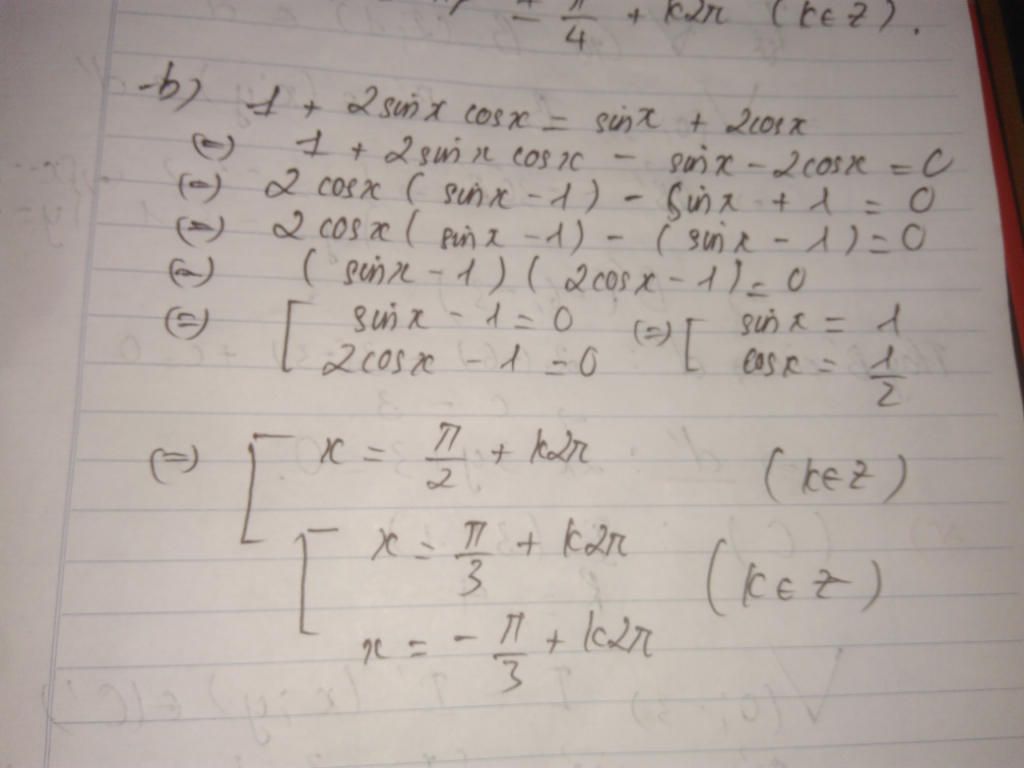 - π/4 + k2π (k∈Z).
b) 1 + 2sinx cosx = sinx + 2cosx
(=) 1 + 2sinx cosx - sinx - 2cosx = 0
(=) 2cosx ( sinx - 1) - sinx + 1 = 0
(=) 2cosx ( sinx - 1) - ( sinx - 1) = 0
(=) ( sinx - 1) ( 2cosx - 1) = 0
(=) [ sinx - 1 = 0 (=) [ sinx = 1
2cosx - 1 = 0 cosx = 1/2
(=) [ x = π/2 + k2π (k∈Z)
[ x = π/3 + k2π (k∈Z)
x = - π/3 + k2π